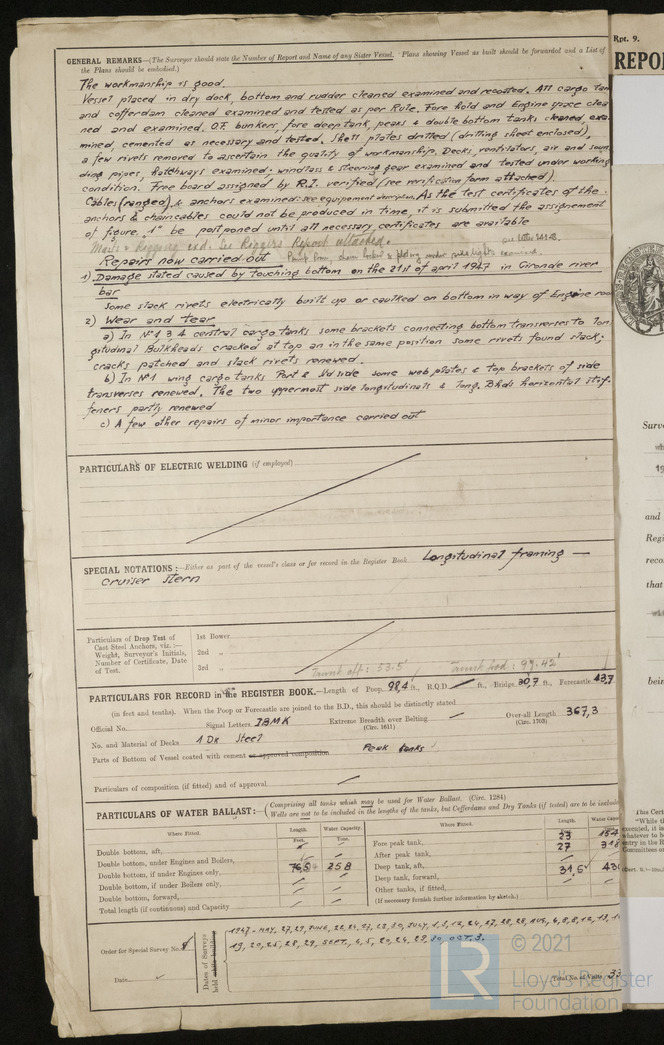 GENERAL REMARKS—(The Surveyor should state the Number of Report and Name of any Sister Vessel. Plans showing Vessel as built should be forwarded and a List of
the Plans should be embodied.)
The workmanship is good.
Vessel placed in dry dock, bottom and rudder cleaned examined and recoated. All cargo tan
and cofferdam cleaned examined and tested as per Rule. Fore hold and Engine space clea
ned and examined. O.F. bunkers, fore deep tank, peaks & double bottom tanks cleaned, exa-
mined, cemented as necessary and tested. Shell plates drilled (drilling sheet enclosed),
a few rivets removed to ascertain the quality of workmanship. Decks, ventilators, air and soun
ding pipes, hatchways examined; windlass & steering gear examined and tested under working
condition. Free board assigned by R.I. verified (see verification form attached).
Cables (ranged), & anchors examined: see equipement As the test certificates of the
anchors & chaincables could not be produced in time, it is submitted the assignement
of figure "1" be postponed until all necessary certificates are available
Masts & Rigging exd. See Riggers Report attached.
see letter
Repairs now carried out
1) Damage stated caused by touching bottom on the 21st of april 1947 in Gironde river
bar
Some slack rivets electrically built up or caulked on bottom in way of Engine roo
2) Wear and tear
a) In Nº1 3 4 central cargo tanks some brackets connecting bottom transverses to lon
gitudinal Bulkheads cracked at top an in the same position some rivets found slack;
cracks patched and slack rivets renewed.
b) In Nº1 wing cargo tanks Port & Std side some web plates & top brackets of side
transverses renewed. The two uppermost side longitudinals & long. Bhds horizontal stif-
feners partly renewed
c) A few other repairs of minor importance carried out
PARTICULARS OF ELECTRIC WELDING (if employed)
SPECIAL NOTATIONS:—Either as part of the vessel's class or for record in the Register Book Longitudinal framing —
cruiser stern
Particulars of Drop Test of
Cast Steel Anchors, viz.:—
Weight, Surveyor's Initials,
Number of Certificate, Date
of Test.
1st Bower
2nd "
3rd "
Trunk aft: 53.5' Trunk fwd: 99.42'
PARTICULARS FOR RECORD in the REGISTER BOOK.—Length of Poop 98,4 ft., R.Q.D. ft., Bridge 30,7 ft., Forecastle 43,7
(in feet and tenths). When the Poop or Forecastle are joined to the B.D., this should be distinctly stated
Official No. Signal Letters IBMK Extreme Breadth over Belting (Circ. 1611) Over-all Length 367,3 (Circ. 1703)
No. and Material of Decks 1 Dk Steel
Parts of Bottom of Vessel coated with cement or approved composition Peak tanks
Particulars of composition (if fitted) and of approval
PARTICULARS OF WATER BALLAST:— (Comprising all tanks which may be used for Water Ballast. (Circ. 1284)
Wells are not to be included in the lengths of the tanks, but Cofferdams and Dry Tanks (if tested) are to be includ
Where Fitted. Length. Water Capacity. Where Fitted. Length. Water Capa
Feet. Tons.
Double bottom, aft,
Double bottom, under Engines and Boilers,
Double bottom, if under Engines only, 76,5 258
Double bottom, if under Boilers only,
Double bottom, forward,
Total length (if continuous) and Capacity
Fore peak tank, 23 154
After peak tank, 27 318
Deep tank, aft,
Deep tank, forward, 31,5 43
Other tanks, if fitted,
(If necessary furnish further information by sketch.)
Order for Special Survey No.
Date
Dates of Surveys held while building
1947 - MAY, 27, 29 JUNE, 22, 24, 27, 28, 30, JULY, 1, 3, 12, 24, 27, 28, 29, AUG, 4, 8, 9, 12, 13, 1
19, 20, 25, 28, 29, SEPT., 4, 5, 20, 24, 29, 30, OCT, 3.
Total No. of Visits 33
Rpt. 9.
REPO
Surv
19
and
Regi
reco
that
bein
This Cert
"While t
executed, it is
whatever to be
entry in the R
Committees o
© 2021
LR
Lloyd's Register
Foundation